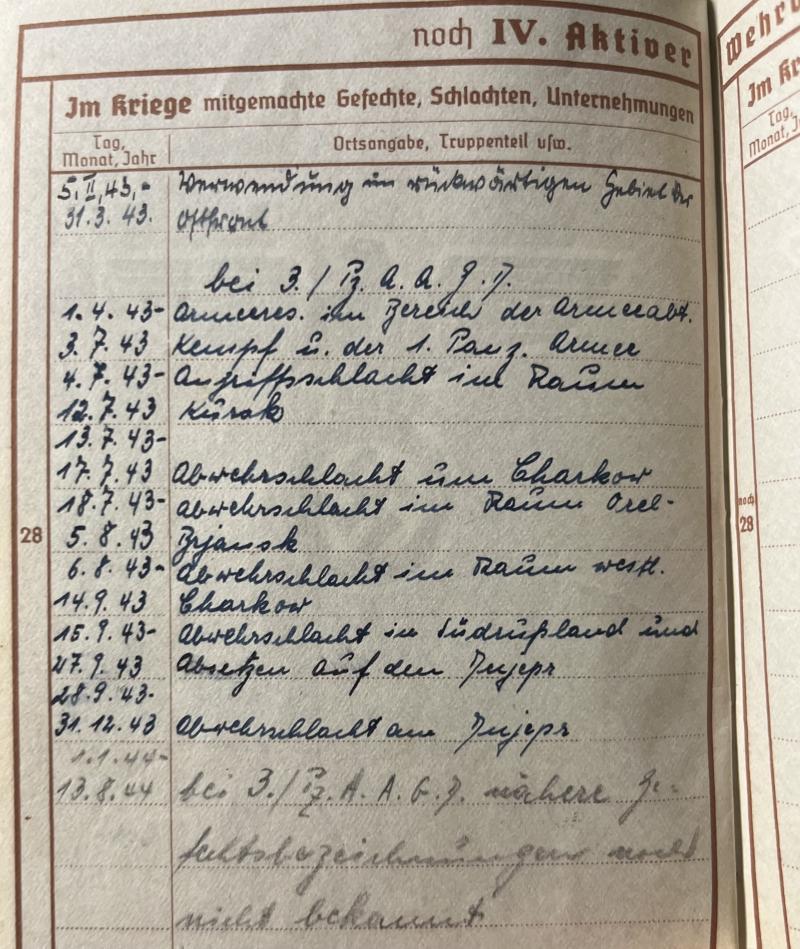 noch IV. Aktiver
Im Kriege mitgemachte Gefechte, Schlachten, Unternehmungen
Tag, Monat, Jahr
Ortsangabe, Truppenteil usw.
5.II.43.- Verwendung im rückwärtigen Gebiet der
31.3.43. Ostfront
bei 3./Pz.A.A.G.D.
1.4.43- Armeeres. im Bereich der Armeeabt.
3.7.43 Kempf u. der 1. Panz. Armee
4.7.43- Angriffsschlacht im Raum
12.7.43 Kursk
13.7.43-
17.7.43 Abwehrschlacht um Charkow
18.7.43- Abwehrschlacht im Raum Orel-
5.8.43 Brjansk
6.8.43- Abwehrschlacht im Raum westl.
14.9.43 Charkow
15.9.43- Abwehrschlacht in Südrußland und
27.9.43 Absetzen auf den Dnjepr
28.9.43-
31.12.43 Abwehrschlacht am Dnjepr
1.1.44-
13.8.44 bei 3./Pz.A.A.G.D. nähere Ge-
fechtsbezeichnungen noch
nicht bekannt
28
Wehrd
Im Kr
Tag,
Monat, Jahr
noch
28